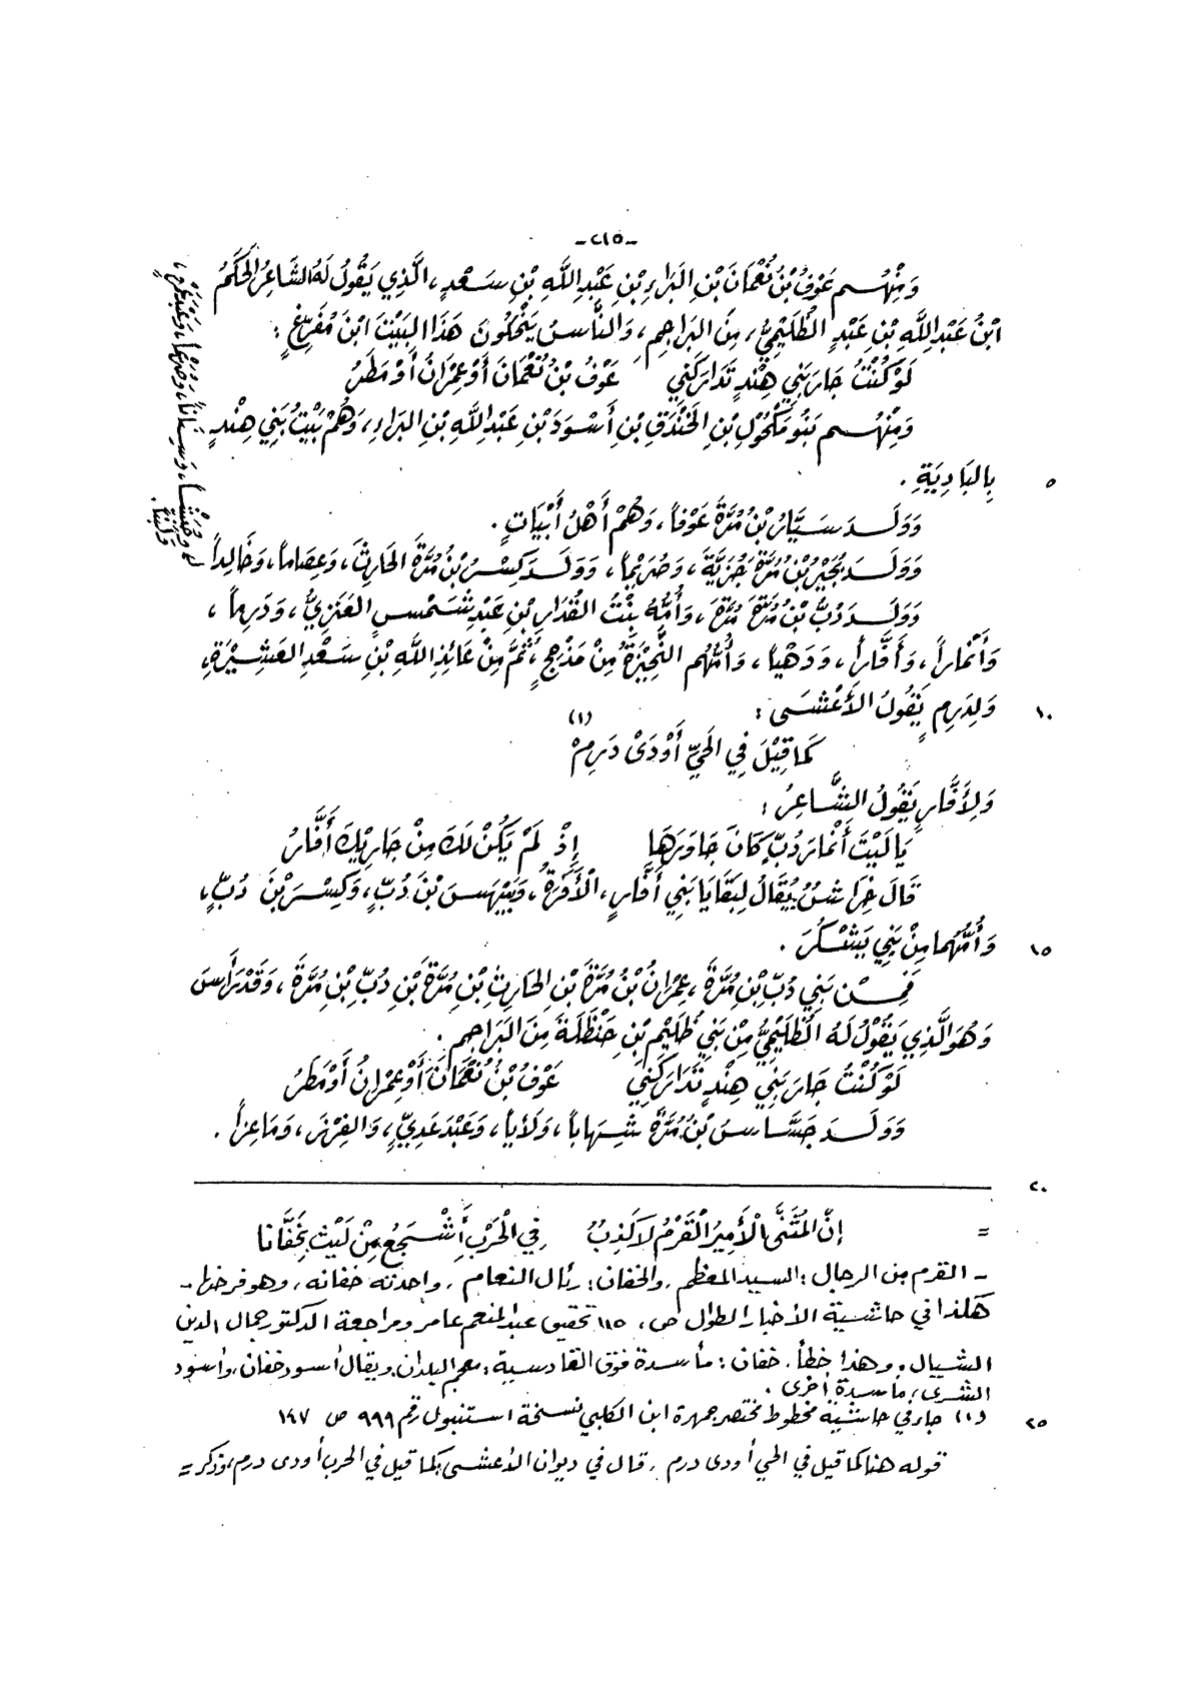 -٢١٥-
وَمِنْهُم عَوْفُ بْنُ نُعْمَانَ بْنِ البَرَاءِ بْنِ عَبْدِ اللَّهِ بْنِ سَعْدٍ، الَّذِي يَقُولُ لَهُ الشَّاعِرُ الحَكَمُ
ابْنُ عَبْدِ اللَّهِ بْنِ عَبْدٍ الظُّلَيْمِيُّ، مِنَ البَرَاجِمِ، وَالنَّاسُ يَنْحَلُونَ هَذَا البَيْتَ ابْنَ مُفَرِّغٍ:
لَوْ كُنْتُ جَارَ بَنِي هِنْدٍ تَدَارَكَنِي عَوْفُ بْنُ نُعْمَانَ أَوْ عِمْرَانُ أَوْ مَطَرُ
وَمِنْهُم بَنُو مَكْحُولِ بْنِ الخَنْدَقِ بْنِ أَسْوَدَ بْنِ عَبْدِ اللَّهِ بْنِ البَرَاءِ، وَهُمْ بَيْتُ بَنِي هِنْدٍ
٥ بِالبَادِيَةِ.
وَوَلَدَ سَيَّارُ بْنُ مُرَّةَ عَوْفاً، وَهُمْ أَهْلُ أَبْيَاتٍ.
وَوَلَدَ بُجَيْرُ بْنُ مُرَّةَ جُزَيَّةَ، وَصُرَيْماً، وَوَلَدَ كِسْرُ بْنُ مُرَّةَ الحَارِثَ، وَعِصَاماً، وَخَالِداً
وَوَلَدَ دُبُّ بْنُ مُرَّةَ مُرَّةَ، وَأُمُّهُ بِنْتُ القُدَارِ بْنِ عَبْدِ شَمْسٍ العَنَزِيُّ، وَدَرِماً،
وَأَنْمَاراً، وَأَفَّاراً، وَوَهْياً، وَأُمُّهُم النَّجِيْزَةُ مِنْ مَذْحِجٍ، ثُمَّ مِنْ عَائِذِ اللَّهِ بْنِ سَعْدِ العَشِيْرَةِ،
١٠ وَلِدَرِمٍ يَقُولُ الأَعْشَى:
كَمَا قِيْلَ فِي الحَيِّ أَوْدَى دَرِمْ (١)
وَلِأَفَّارٍ يَقُولُ الشَّاعِرُ:
يَا لَيْتَ أَنْمَارَ دُبٍّ كَانَ جَاوَرَهَا إِذْ لَمْ يَكُنْ لَكَ مِنْ جَارَيْكَ أَفَّارُ
قَالَ خِرَاشٌ: يُقَالُ لِبَقَايَا بَنِي أَفَّارٍ، الْأَفَرَةُ، وَبَيْهَسَ بْنَ دُبٍّ، وَكِسْرَ بْنَ دُبٍّ،
١٥ وَأُمُّهُمَا مِنْ بَنِي يَشْكُرَ.
فَمِنْ بَنِي دُبِّ بْنِ مُرَّةَ، عِمْرَانُ بْنُ مُرَّةَ بْنِ الحَارِثِ بْنِ مُرَّةَ بْنِ دُبِّ بْنِ مُرَّةَ، وَقَدْ رَأَسَ
وَهُوَ الَّذِي يَقُولُ لَهُ الظُّلَيْمِيُّ مِنْ بَنِي ظُلَيْمِ بْنِ حَنْظَلَةَ مِنَ البَرَاجِمِ.
لَوْ كُنْتُ جَارَ بَنِي هِنْدٍ تَدَارَكَنِي عَوْفُ بْنُ نُعْمَانَ أَوْ عِمْرَانُ أَوْ مَطَرُ
وَوَلَدَ جَسَّاسُ بْنُ مُرَّةَ شِهَاباً، وَلَأْياً، وَعَبْدَ عَدِيٍّ، وَالفِزْرَ، وَمَاعِزاً.
٢٠
= إنَّ المُثَنَّى الْأَمِيْرُ الْقَرْمُ لَا كَذِبٌ فِي الْحَرْبِ أَشْجَعُ مِنْ لَيْثٍ بِخَفَّانَا
- القرم من الرجال: السيد المعظم، والخفان: رئال النعام، واحدته خفانه، وهو فرخها-
هكذا في حاشية الأخبار الطوال ص، ١١٥ تحقيق عبد المنعم عامر ومراجعة الدكتور جمال الدين
الشيال، وهذا خطأ. خفان: مأسدة فوق القادسية: معجم البلدان، ويقال أسود خفان، وأسود
الشرى، مأسدة أخرى.
٢٥ (١) جاء في حاشية مخطوط مختصر جمهرة ابن الكلبي نسخة استنبول رقم ٩٩٩ ص ١٤٧
قوله هنا كما قيل في الحي أودى درم، قال في ديوان الأعشى كما قيل في الحرب أودى درم، وذكر =